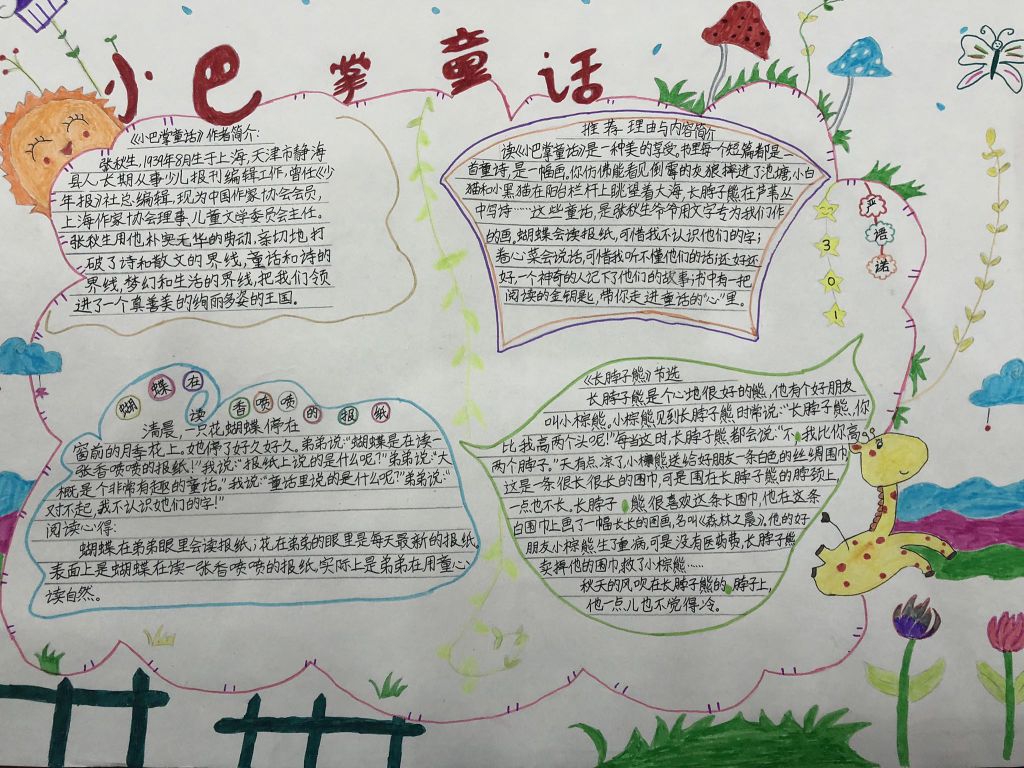 小巴掌童话
《小巴掌童话》作者简介:
张秋生,1939年8月生于上海,天津市静海
县人,长期从事少儿报刊编辑工作,曾任《少
年报》社总编辑,现为中国作家协会会员,
上海作家协会理事、儿童文学委员会主任。
张秋生用他朴实无华的劳动,亲切地打
破了诗和散文的界线,童话和诗的
界线,梦幻和生活的界线,把我们领
进了一个真善美的绚丽多姿的王国。
推荐理由与内容简介
读《小巴掌童话》是一种美的享受。书里每个短篇都是一
首童诗,是一幅画。你仿佛能看见倒霉的灰狼摔进了泡塘,小白
猫和小黑猫在阳台栏杆上眺望着大海,长脖子熊在芦苇丛
中写诗……这些童话,是张秋生爷爷用文字专为我们作
的画。蝴蝶会读报纸,可惜我不认识他们的字;
卷心菜会说话,可惜我听不懂他们的话;还好还
好一个神奇的人记下了他们的故事;书中有一把
阅读的金钥匙,带你走进童话的“心”里。
严
语
诺
3
0
1
蝴蝶在读香喷喷的报纸
清晨,一只花蝴蝶停在
窗前的月季花上。她停了好久好久。弟弟说:“蝴蝶是在读一
张香喷喷的报纸!”我说:“报纸上说的是什么呢?”弟弟说:“大
概,是个非常有趣的童话。”我说:“童话里说的是什么呢?”弟弟说:“
对不起,我不认识她们的字!”
阅读心得:
蝴蝶在弟弟眼里会读报纸;花在弟弟的眼里是每天最新的报纸,
表面上是蝴蝶在读一张香喷喷的报纸,实际上是弟弟在用童心
读自然。
《长脖子熊》节选
长脖子熊是个心地很好的熊,他有个好朋友
叫小棕熊。小棕熊见到长脖子熊时常说:“长脖子熊,你
比我高两个头呢!”每当这时,长脖子熊都会说:“不,我比你高
两个脖子。”天有点凉了,小棕熊送给好朋友一条白色的丝绸围巾
这是一条很长很长的围巾,可是围在长脖子熊的脖颈上,
一点也不长。长脖子熊很喜欢这条长围巾,他在这条
白围巾上画了一幅长长的图画,名叫《森林之晨》。他的好
朋友小棕熊生了重病,可是没有医药费,长脖子熊
卖掉他的围巾救了小棕熊……
秋天的风吹在长脖子熊的脖子上,
他一点儿也不觉得冷。